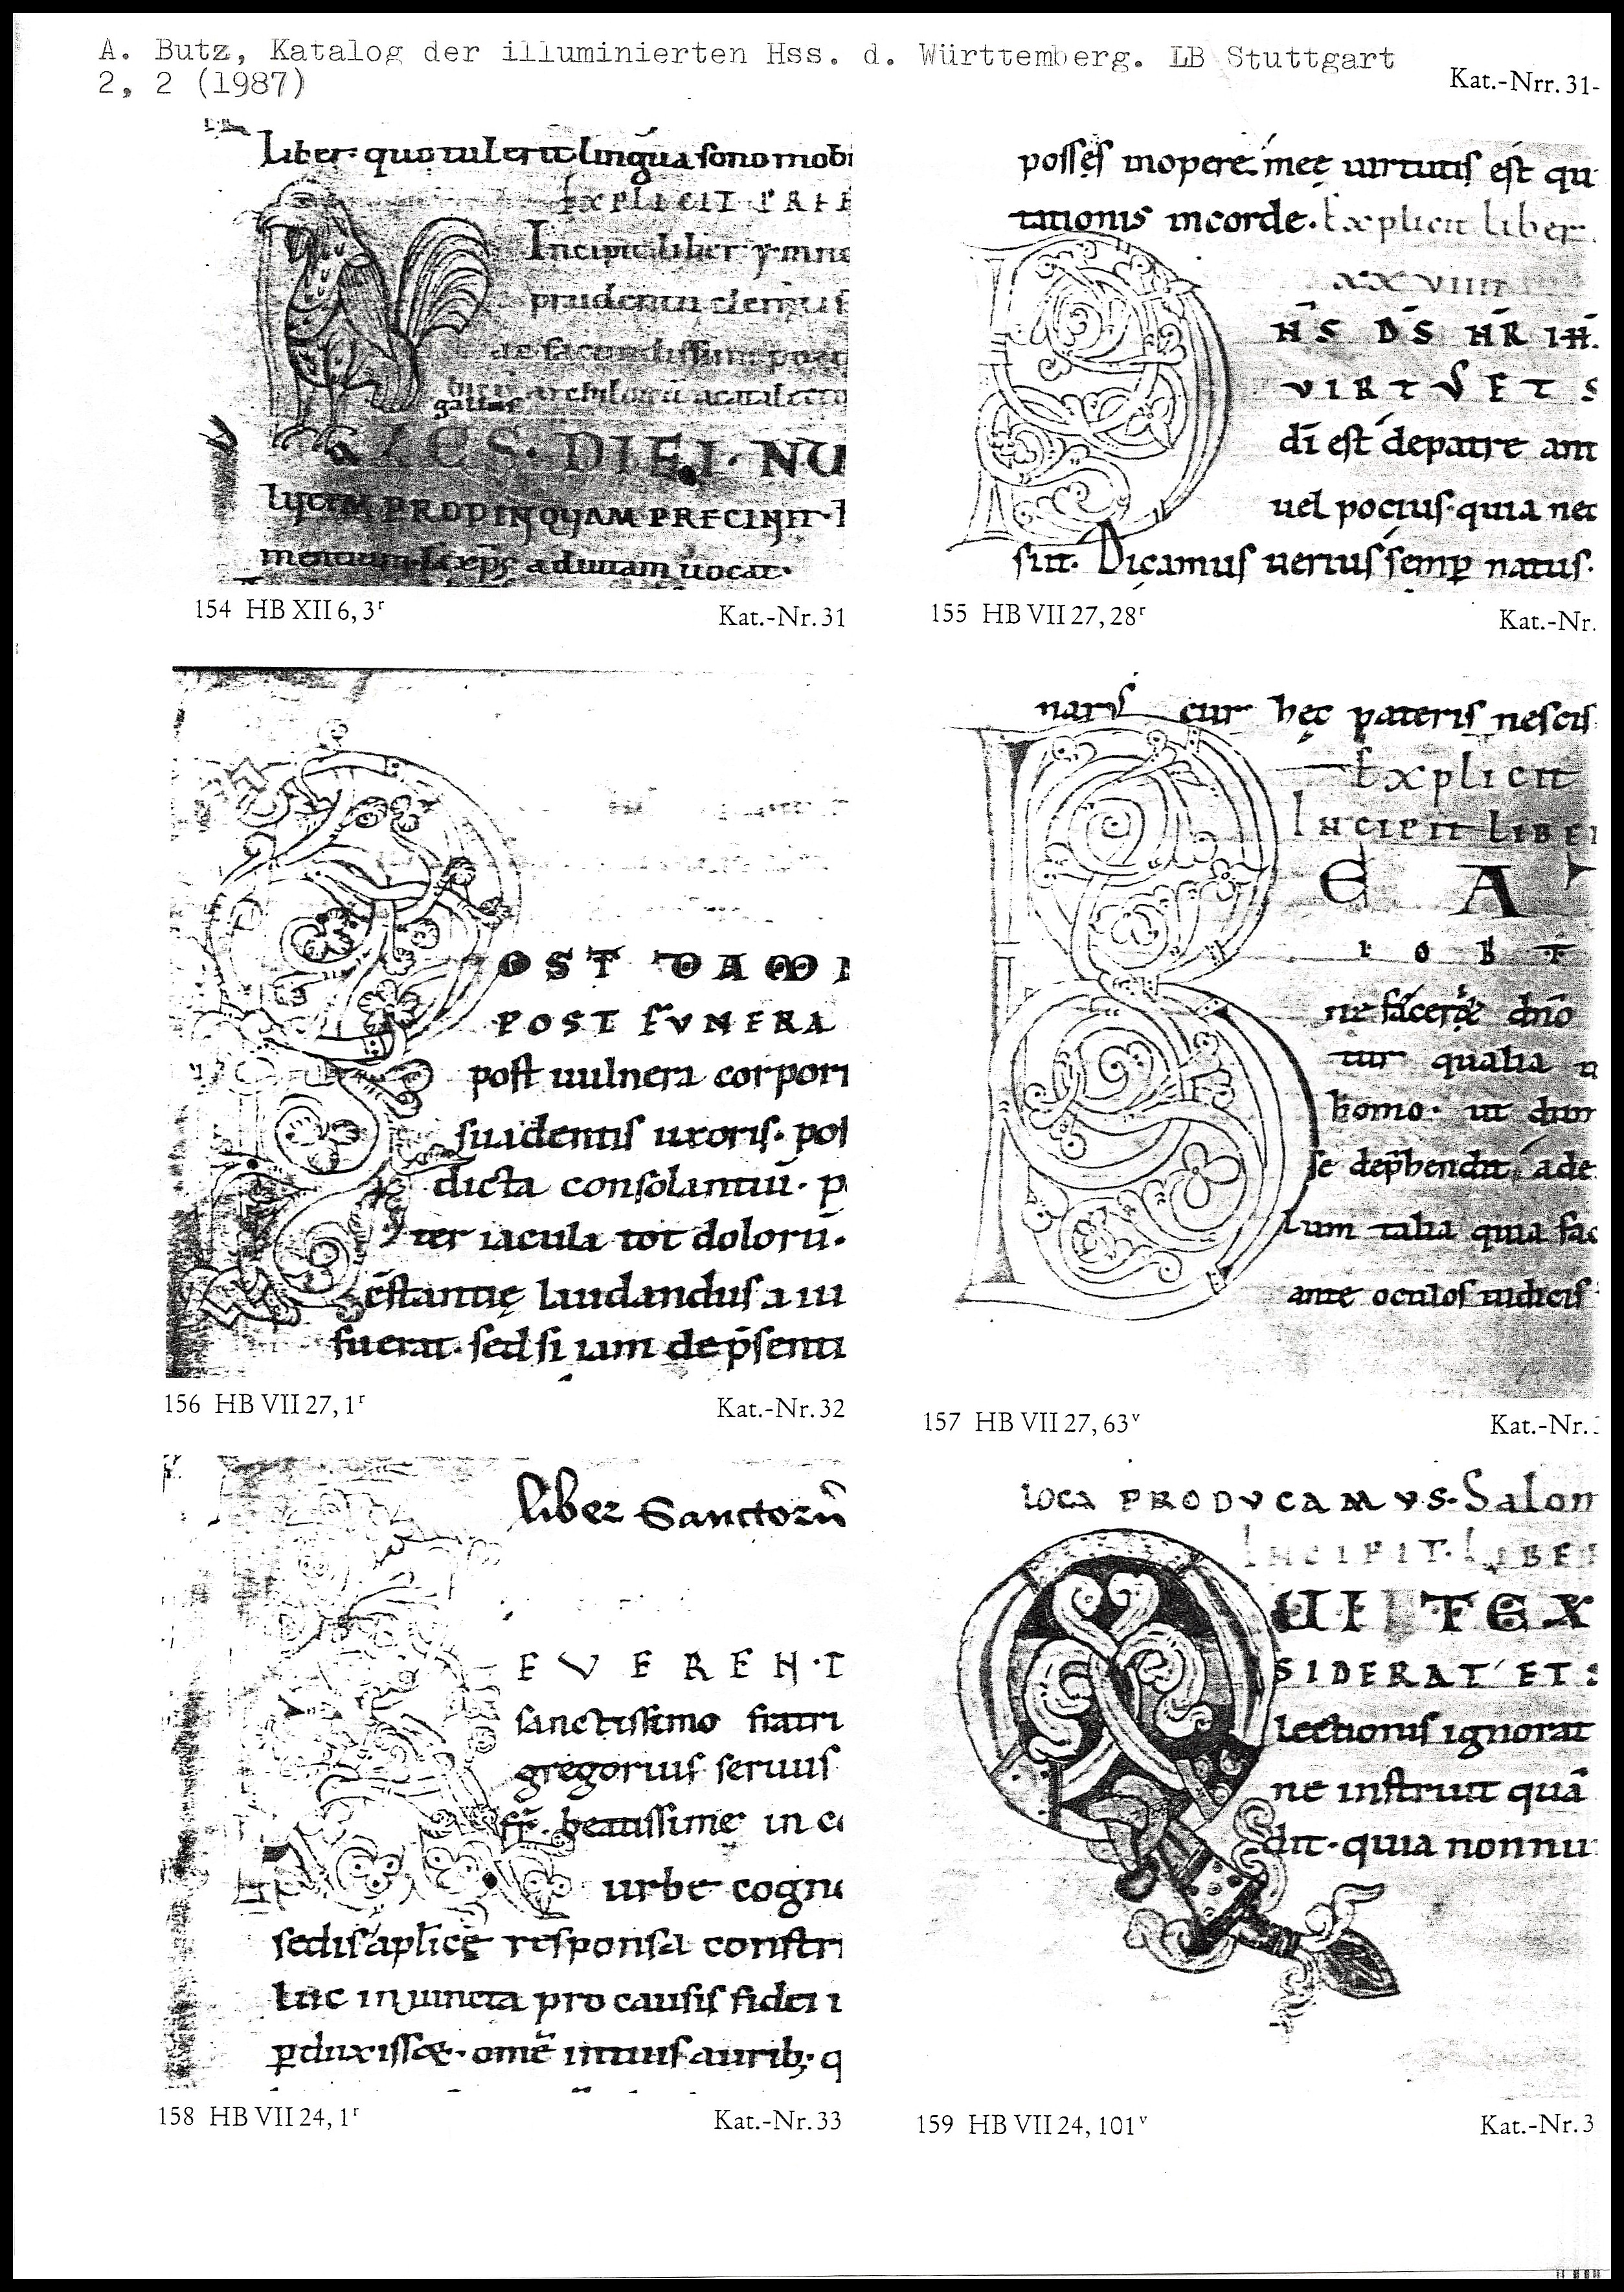 A. Butz, Katalog der illuminierten Hss. d. Württemberg. LB Stuttgart
2, 2 (1987)
Kat.-Nrr. 31-
Liber quo tulerit lingua sono mobi
EXPLICIT PRAE
Incipit liber ymno
prudentii clem
gallus
DIEI NU
lucem PROPINQUAM PRECINIT
mentium xp̄c ad uitam uocat.
154 HB XII 6, 3ʳ
Kat.-Nr. 31
posses in opere. in ee uirtutis est qu
tationis in corde. Explicit liber.
XXVIIII
N̄S D̄S N̄R IH̄
VIRTVS ET S
dī est de patre ant
uel pocius quia nec
sin. Dicamus uerius semp natus.
155 HB VII 27, 28ʳ
Kat.-Nr.
OST DAMN
POST FVNERA
post uulnera corpori
suadentis uxoris. pos
dicta consolantiū. p
ter iacula tot dolorū.
c̄stantię laudandus a iu
fuerat. sed si iam de p̄senti
156 HB VII 27, 1ʳ
Kat.-Nr. 32
naris cur hęc pateris nescis
Explicit
Incipit LIBER
E A T
I O B
ne facerę dn̄o
tur qualia n
homo. ut dum
se dep̄hendit, ade
lum talia quia fac
ante oculos iudicis
157 HB VII 27, 63ᵛ
Kat.-Nr.
liber Sanctorū
E V E R E N T
sanctissimo fratri
gregorius seruus
fr̄. beatissime in c
urbe cogno
sedis aplicę responsa constri
luc iniuncta pro causis fidei i
pduxissæ. om̄e intuis aurib; q
158 HB VII 24, 1ʳ
Kat.-Nr. 33
loca PRODVCAMVS. Salom
INCIPIT. LIBER
UI TEX
SIDERAT ET S
lectionis ignorat
ne instruit quā
dit. quia nonnu
159 HB VII 24, 101ᵛ
Kat.-Nr. 3